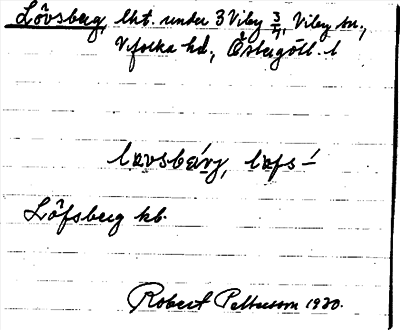 Lövsberg, lht. under 3 Viby 3/4, Viby sn.,
Vifolka hd., Östergötl. l
Löfsberg kb.
Robert Pettersson 1920.